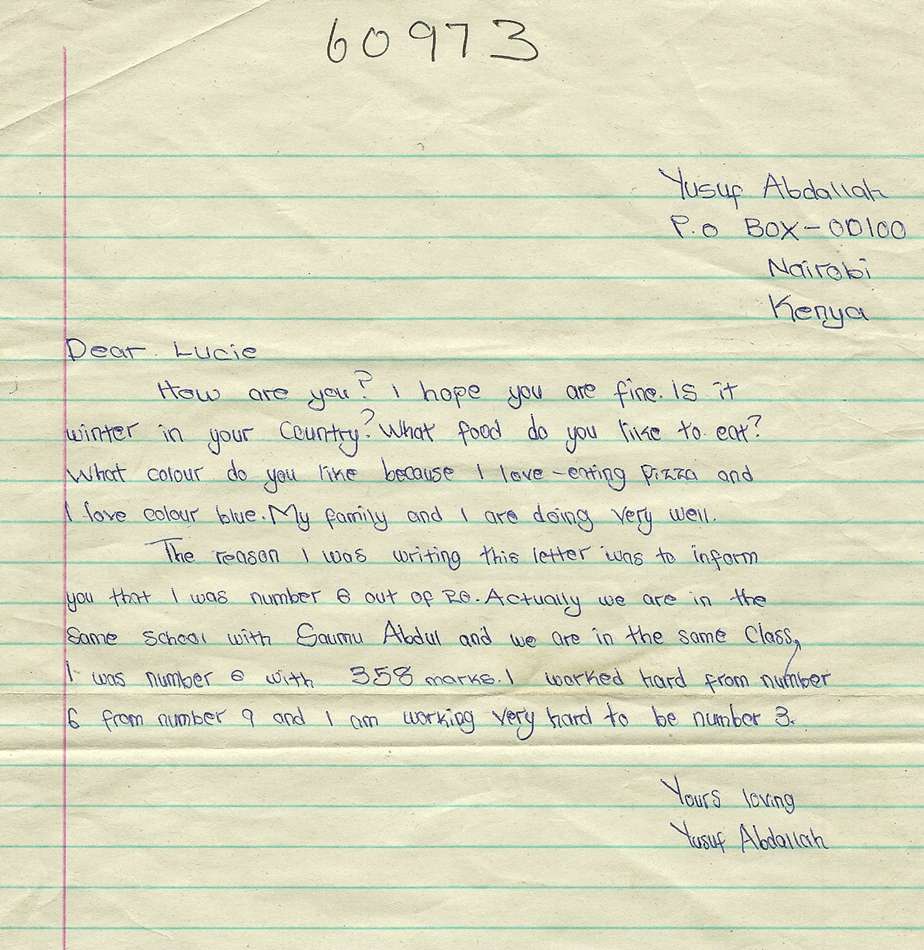 60973
Yusuf Abdallah
P.o BOX - 00100
Nairobi
Kenya
Dear. Lucie
How are you? I hope you are fine. Is it
winter in your Country? What food do you like to eat?
What colour do you like because I love - eating Pizza and
I love colour blue. My family and I are doing very well.
The reason I was writing this letter was to inform
you that I was number 6 out of. Actually we are in the
Same School with Saumu Abdul and we are in the same Class,
I was number 6 with 358 marks. I worked hard from number
6 from number 9 and I am working very hard to be number 3.
Yours loving
Yusuf Abdallah